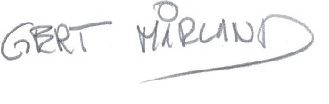 GERT MÅRLAND